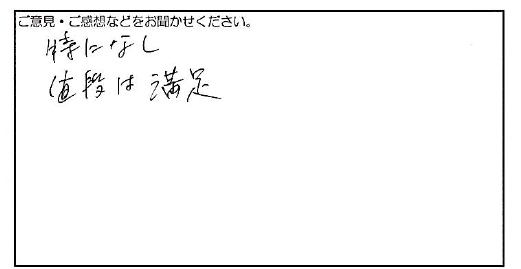 ご意見・ご感想などをお聞かせください。
特になし
値段は満足